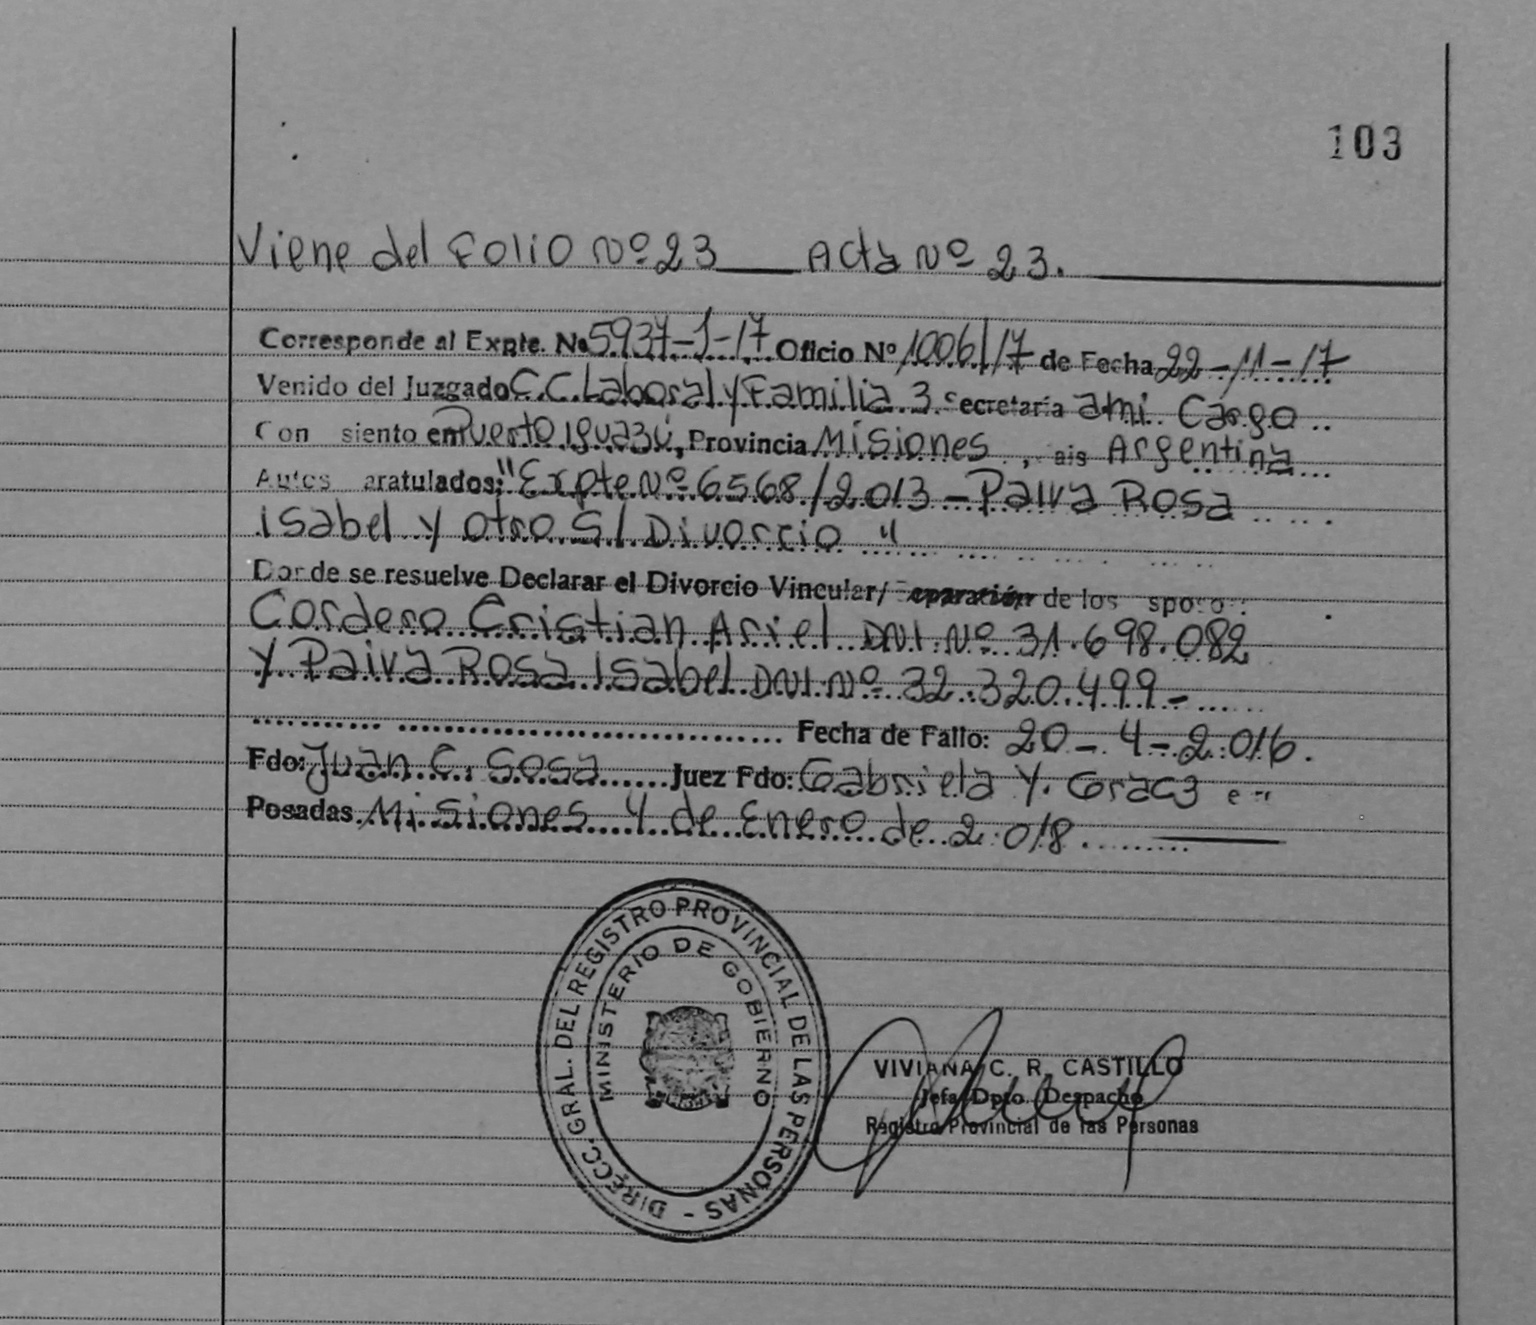 103
Viene del Folio Nº 23 ___ Acta Nº 23.
Corresponde al Expte. Nº 5937-J-17 Oficio Nº 1006/17 de Fecha 22-11-17
Venido del Juzgado C.C. Laboral y Familia 3 Secretaría a mi Cargo
Con siento en Puerto Iguazú, Provincia Misiones, ais Argentina
Autos aratulados: "Expte Nº 6568/2013 - Paiva Rosa
Isabel y otro S/ Divorcio "
Donde se resuelve Declarar el Divorcio Vincular/ Separación de los sposo:
Cordero Cristian Ariel DNI. Nº 31.698.082
y Paiva Rosa Isabel DNI. Nº 32.320.499-
Fecha de Fallo: 20-4-2.016.
Fdo: Juan C. Sosa Juez Fdo: Gabriela Y.
Posadas Misiones 4 de Enero de 2.018
DIRECC. GRAL. DEL REGISTRO PROVINCIAL DE LAS PERSONAS -
MINISTERIO DE GOBIERNO
VIVIANA C. R. CASTILLO
Jefa Dpto. Despacho
Registro Provincial de las Personas